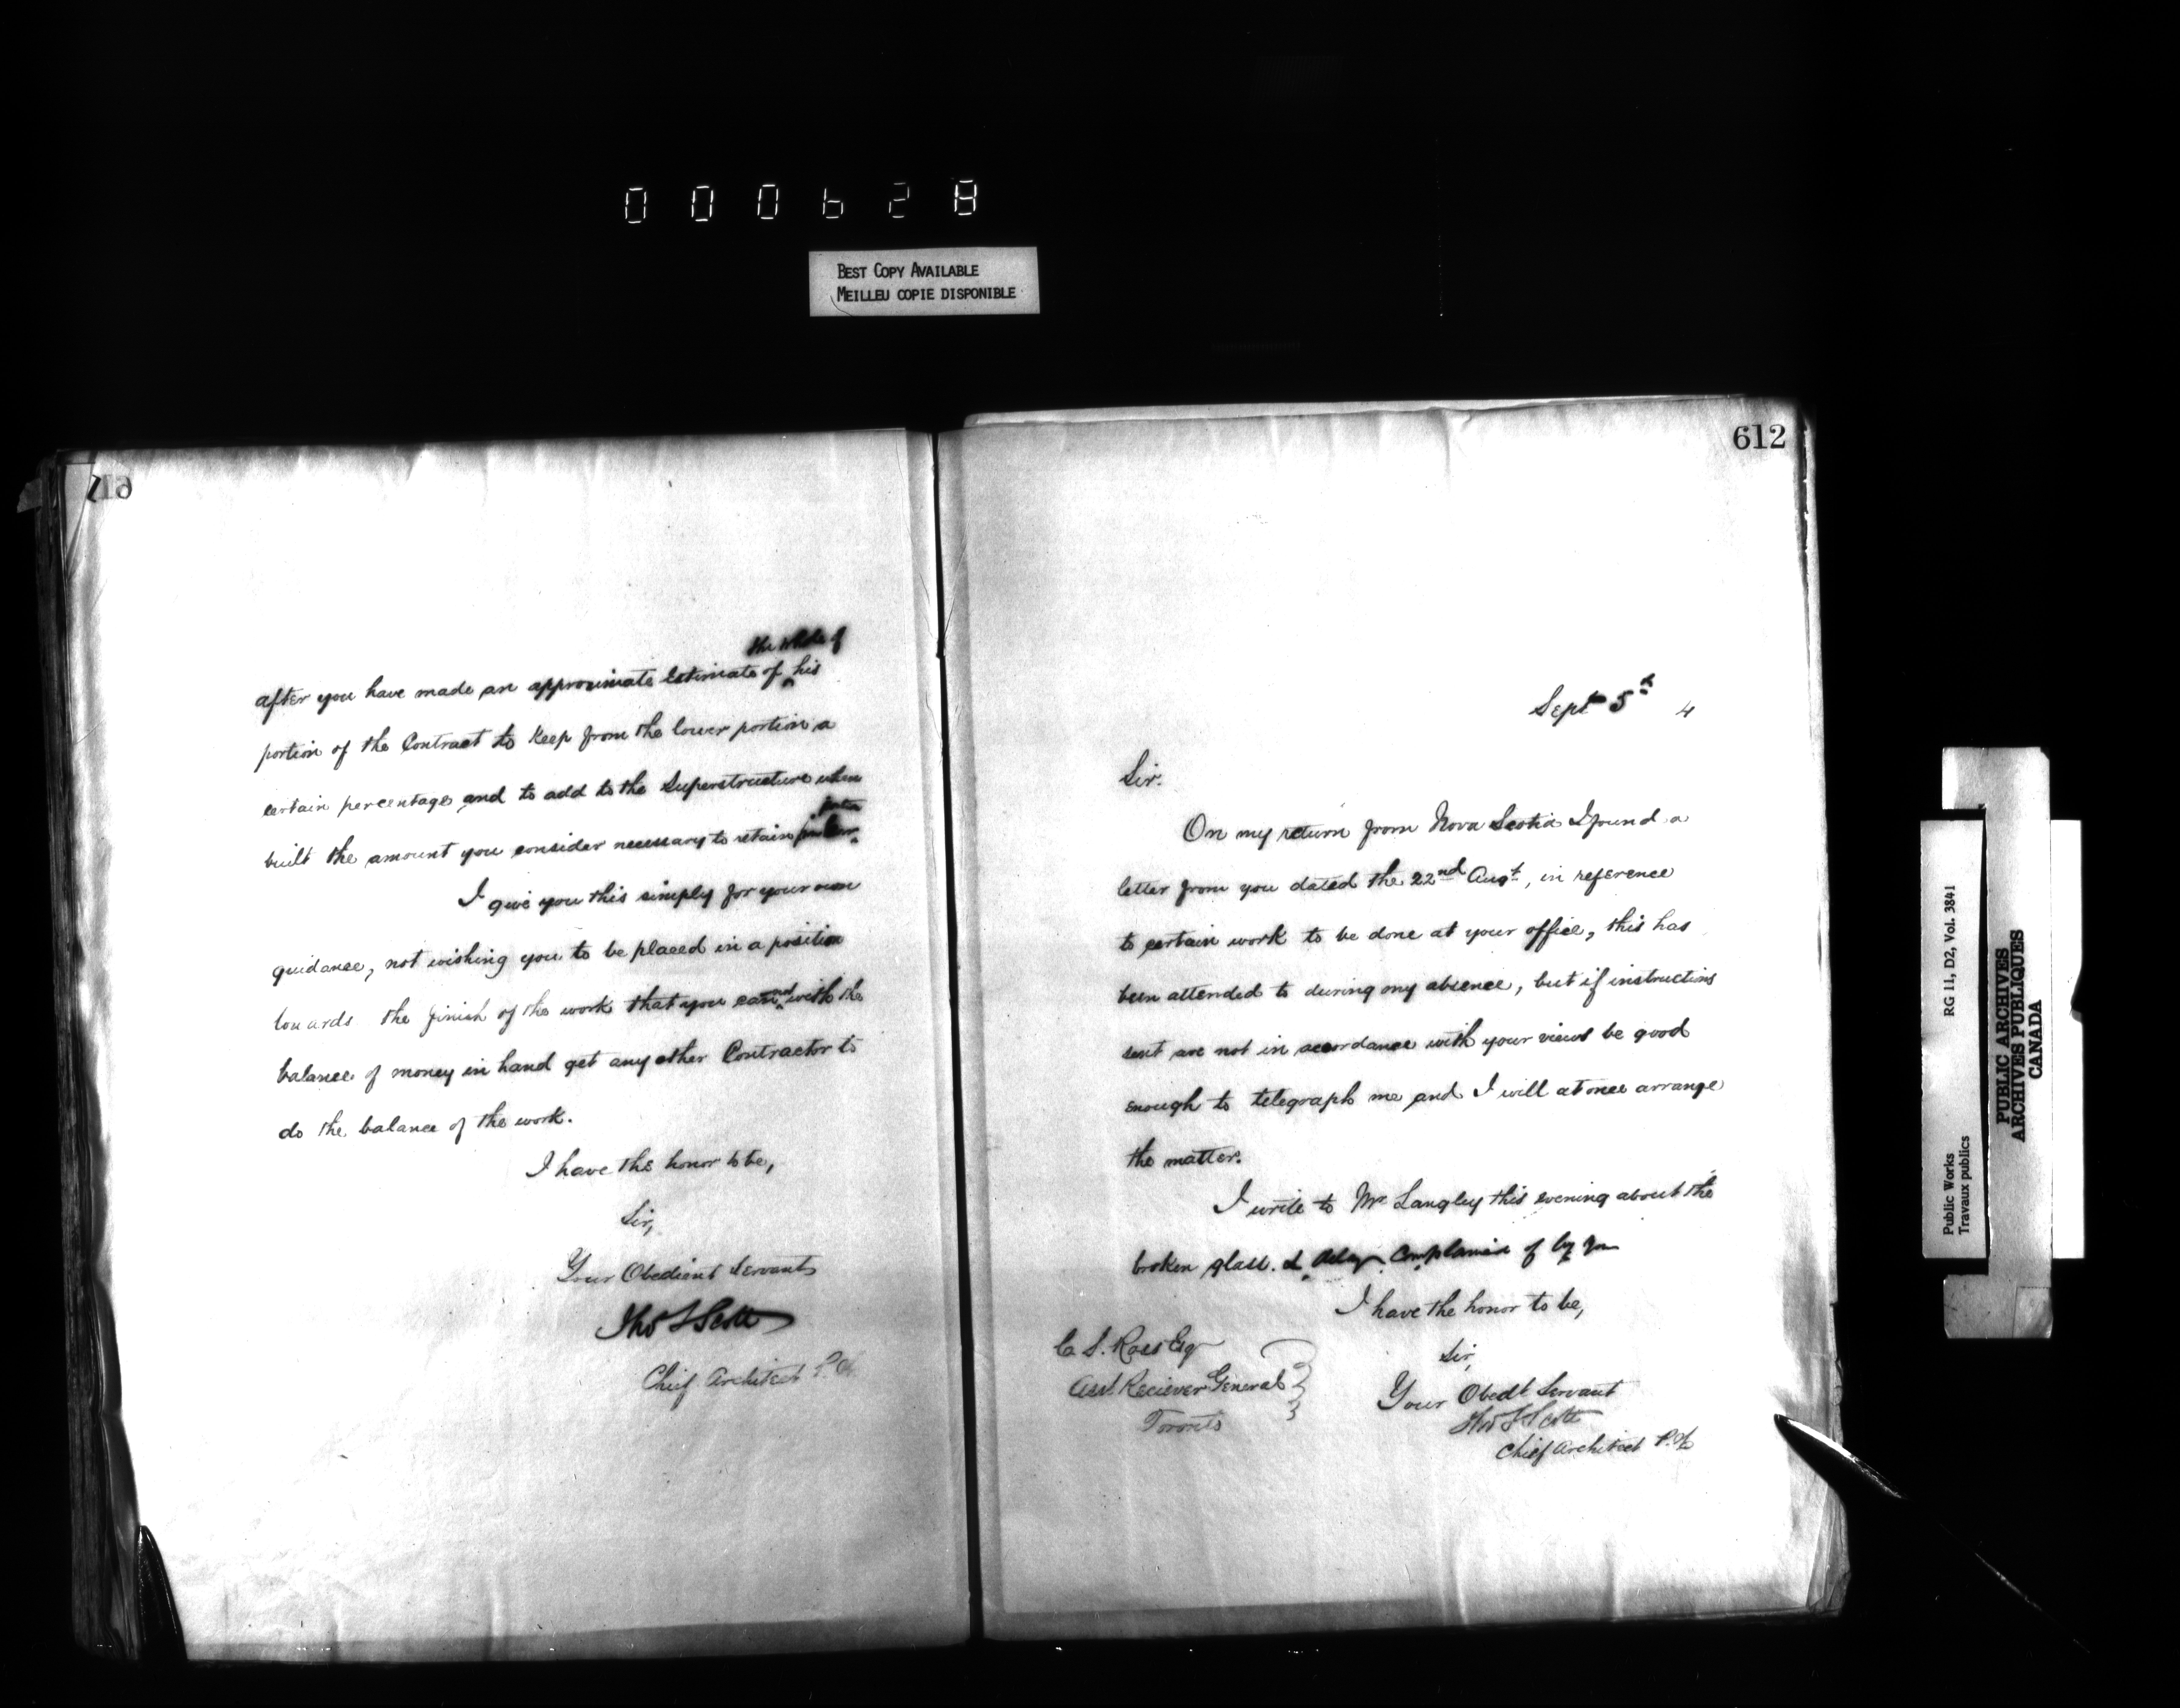 000628
BEST COPY AVAILABLE
MEILLEU COPIE DISPONIBLE
the whole of
after you have made an approximate Estimate of ^ his
portion of the Contract to keep from the lower portion a
certain percentage and to add to the Superstructure when
built the amount you consider necessary to retain
I give you this simply for your own
guidance, not wishing you to be placed in a position
towards the finish of the work that you cannot with the
balance of money in hand get any other Contractor to
do the balance of the work.
I have the honor to be,
Sir,
Your Obedient Servant
Thos S Scott
Chief Architect P.
612
Sept 5th 4
Sir.
On my return from Nova Scotia I found a
letter from you dated the 22nd Augt, in reference
to certain work to be done at your office, this has
been attended to during my absence, but if instructions
sent are not in accordance with your views be good
enough to telegraph me and I will at once arrange
the matter.
I write to Mr Langley this evening about the
broken glass. & delay complained of by you
I have the honor to be,
Sir,
Your Obedt Servant
Thos S Scott
Chief Architect P.W.
C. S. Ross Esq
Asst. Reciever General
Toronto
Public Works RG 11, D2, Vol. 3841
Travaux publics
PUBLIC ARCHIVES
ARCHIVES PUBLIQUES
CANADA